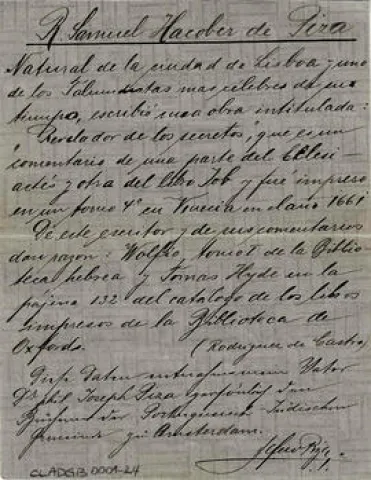 R. Samuel Hacober de Piza
Natural de la ciudad de Lisboa y uno
de los Talmudistas mas celebres de su
tiempo, escribió una obra intitulada:
Revelador de los secretos, que es un
comentario de una parte del Eclesi-
astés y otra del libro Job y fué impreso
en un tomo 4º en Venecia en el año 1661
De este escritor y de sus comentarios
dan razon: Wolfio, tomo I de la Biblio-
teca hebrea y Tomas Hyde en la
pajena 132 del catalogo de los libros
impresos de la Biblioteca de
Oxford. (Rodriguez de Castro)
Diese Daten Vater
Joseph Piza
der Portugiesisch-Jüdischen
Gemeinde zu Amsterdam.
CLADGB 0001-24